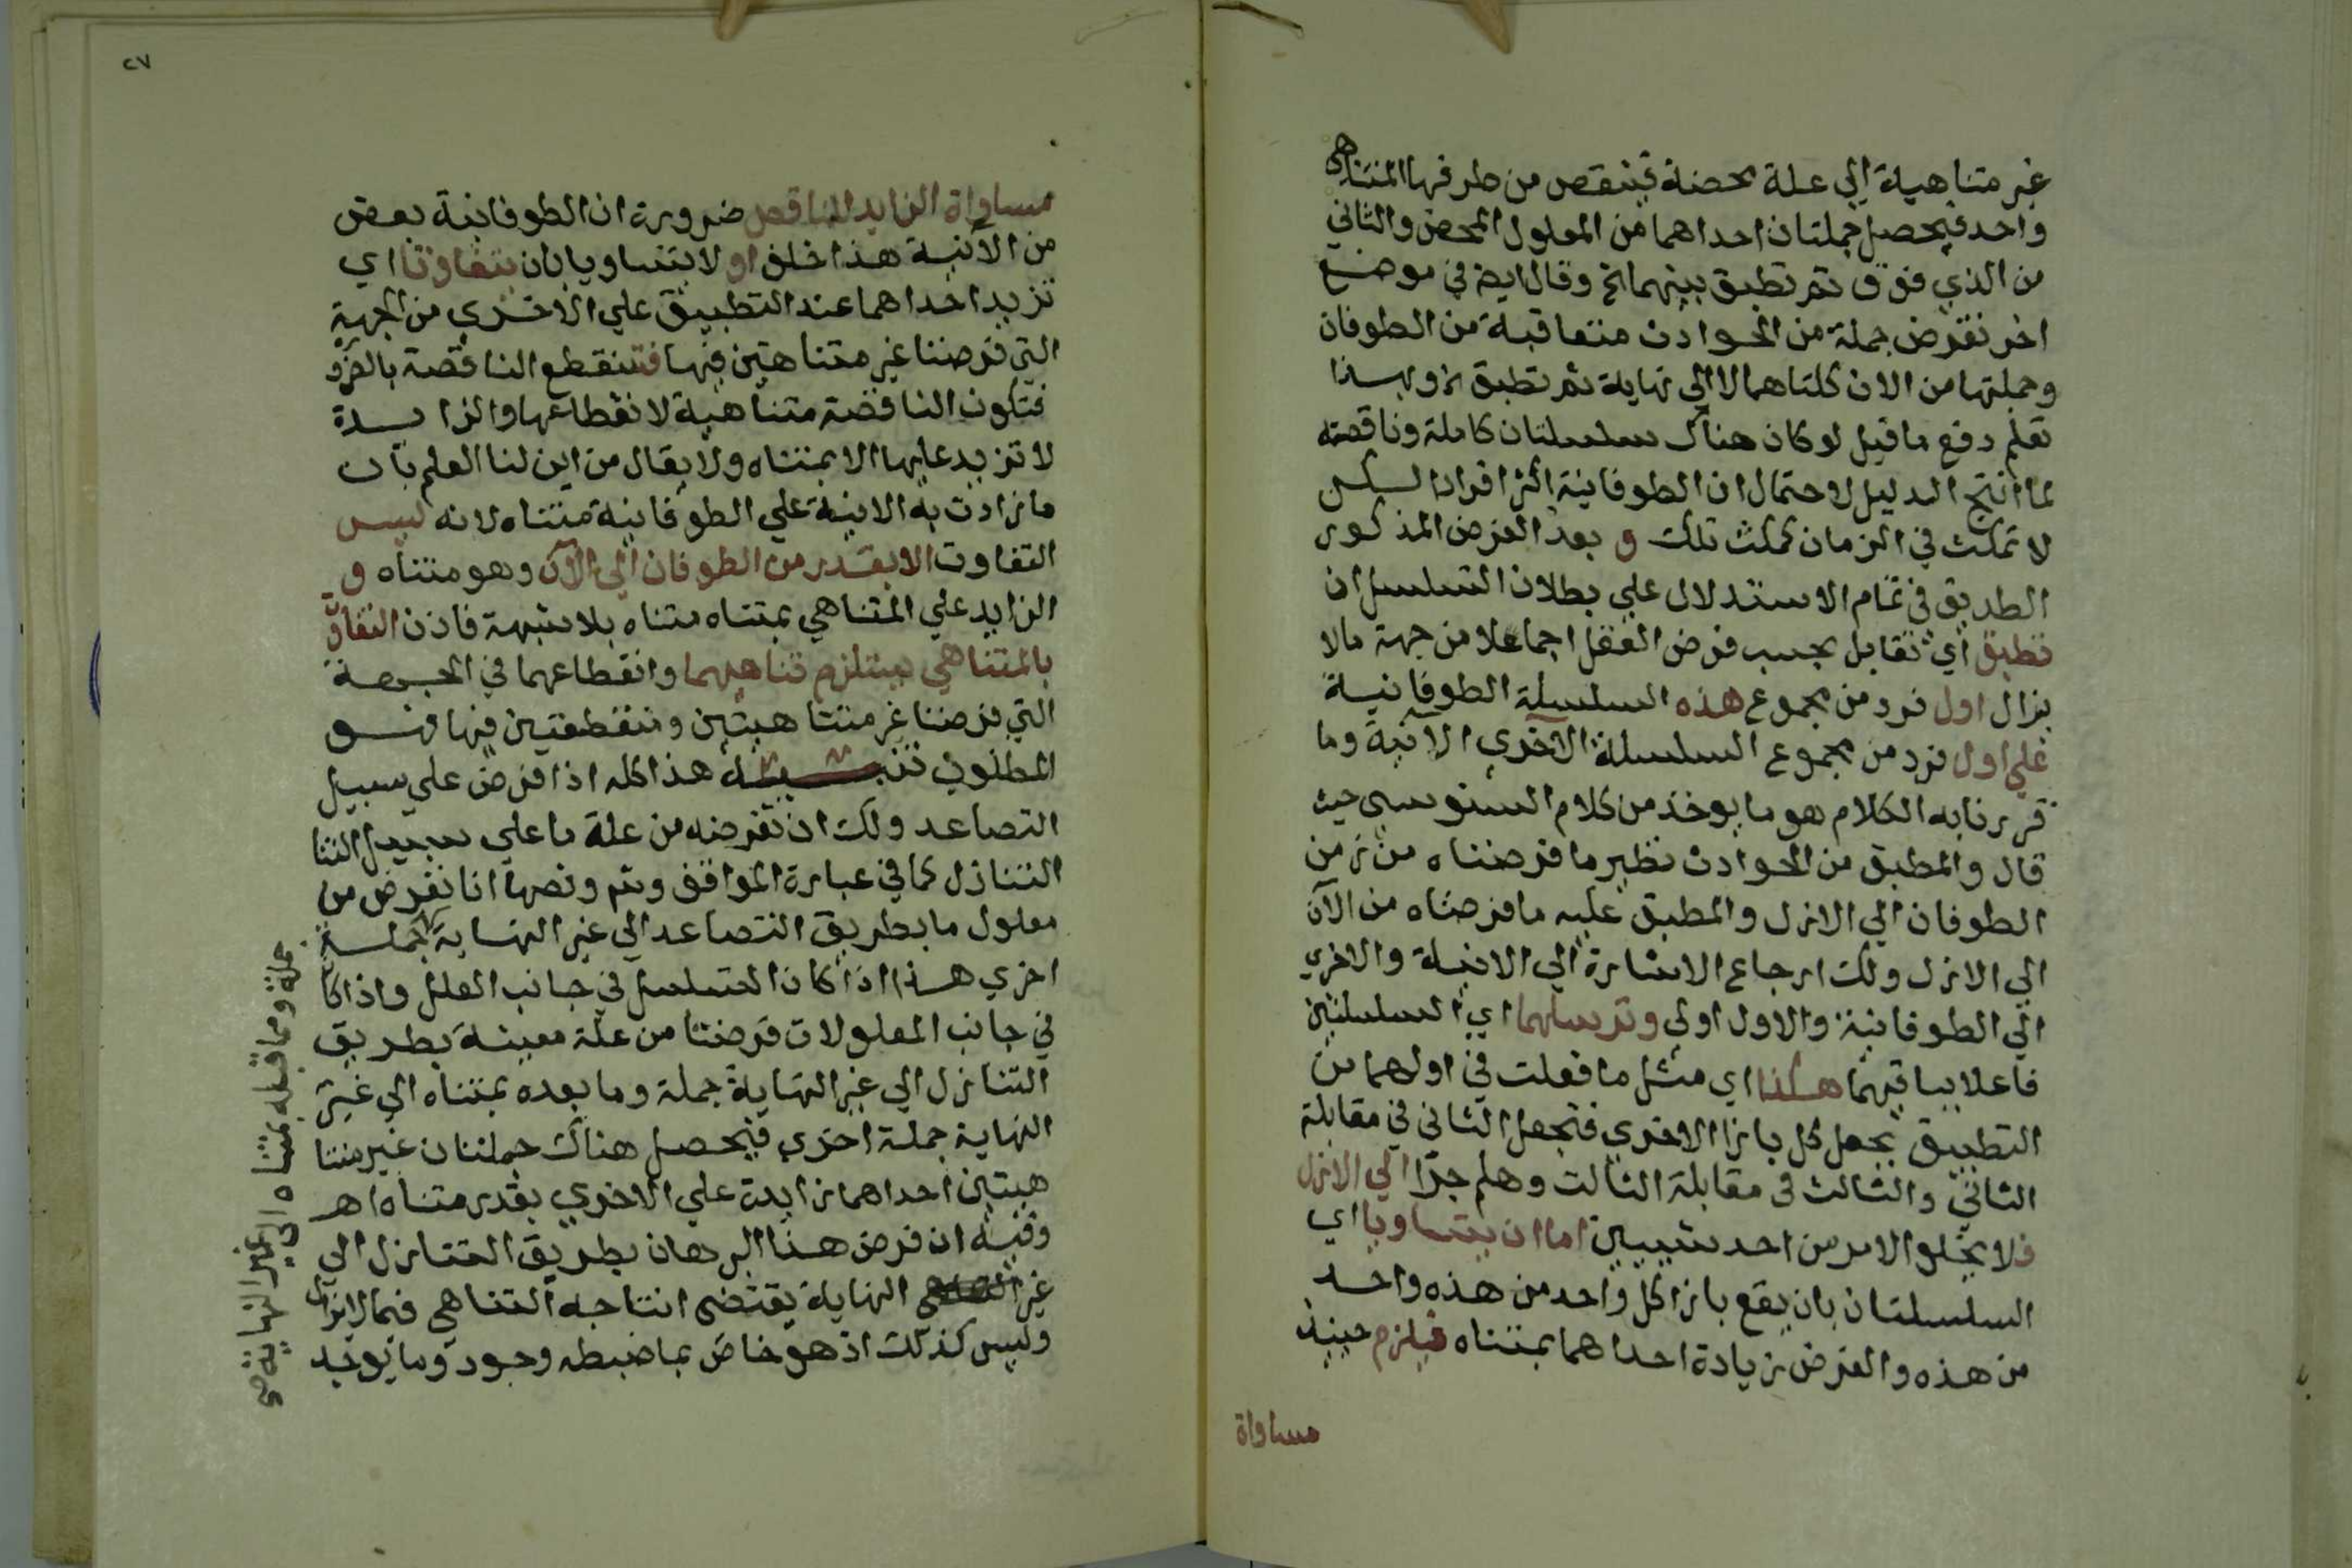 غير متناهية الي علة محضة فينقص من طرفها المتناهي
واحد فيحصل جملتان احداهما من المعلول المحض والثاني
من الذي فوق ثم تطبق بينهما الخ وقال ايض في موضع
اخر نفرض جملة من الحوادث متعاقبة من الطوفان
وجملتها من الان كلتاهما لا الي نهاية ثم تطبق اخ وبهذا
تعلم دفع ما قيل لو كان هناك سلسلتان كاملة وناقصة
لما انتج الدليل لاحتمال ان الطوفانية اكثر افرادا لكن
لا تمكث في الزمان كمكث تلك و بعد الفرض المذكور
الطريق في تمام الاستدلال علي بطلان التسلسل ان
تطبق اي تقابل بحسب فرض العقل اجماعلا من جهة مالا
يزال اول فرد من مجموع هذه السلسلة الطوفانية
علي اول فرد من مجموع السلسلة الاخري الآنية وما
قررنا به الكلام هو ما يوخذ من كلام السنوسي حيث
قال والمطبق من الحوادث نظير ما فرضناه من زمن
الطوفان الي الازل والمطبق عليه ما فرضناه من الآن
الي الازل ولك ارجاع الاشارة الي الانية والاخري
الي الطوفانية والاول اولي وترسلهما اي السلسلتين
فاعلا بباقيهما هكذا اي مثل ما فعلت في اولهما من
التطبيق بجعل كل بازا الاخري فتجعل الثاني في مقابلة
الثاني والثالث في مقابلة الثالث وهلم جرا الي الازل
فلا يخلو الامر من احد شييين اما ان يتساويا اي
السلسلتان بان يقع بازا كل واحد من هذه واحد
من هذه والفرض زيادة احداهما بمتناه فيلزم حينيذ
مساواة
٢٧
مساواة الزايد للناقص ضرورة ان الطوفانية بعض
من الآنية هذا خلف او لا يتساويا بان يتفاوتا اي
تزيد احداهما عند التطبيق علي الاخري من الجهة
التي فرضنا غير متناهتين فيها فتنقطع الناقصة بالضرو
فتكون الناقصة متناهية لانقطاعها والزايدة
لا تزيد عليها الا بمتناه ولا يقال من اين لنا العلم بان
ما زادت به الانية علي الطوفانية متناه لانه ليس
التفاوت الا بقدر من الطوفان الي الآن وهو متناه و
الزايد علي المتناهي بمتناه متناه بلا شبهة فاذن التفاوت
بالمتناهي يستلزم تناهيهما وانقطاعهما في الجهة
التي فرضنا غير متناهيتين ومنقطعتين فيها فهو
المطلوب تنبيه هذا كله اذا فرض علي سبيل
التصاعد ولك ان تفرضه من علة ما علي سبيل التنا
التنازل كما في عبارة المواقف وثم ونصها انا نفرض من
معلول ما بطريق التصاعد الي غير النهاية جملة
اخري هذا اذا كان التسلسل في جانب العلل واذا كا
في جانب المعلولات فرضنا من علة معينة بطريق
التنازل الي غير النهاية جملة وما بعده بمتناه الي غير
النهاية جملة اخري فيحصل هناك جملتان غير متنا
هيتين احداهما زايدة علي الاخري بقدر متناه اهـ
وفيه ان فرض هذا البرهان بطريق التنازل الي
غير النهاية يقتضي انتاجه التناهي فيما لا يزال
وليس كذلك اذ هو خاص بما ضبطه وجود وما يوخذ
جملة ومما قبله بمتناه الي غير النهاية صح